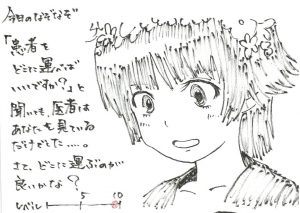 今日のなぞなぞ
「患者を
どこに運なば
いいですか?」と
聞いても、医者は
あなたを見ている
だけでした……。
さて、どこに運ぶのが
良いかな?
レベル 5 10